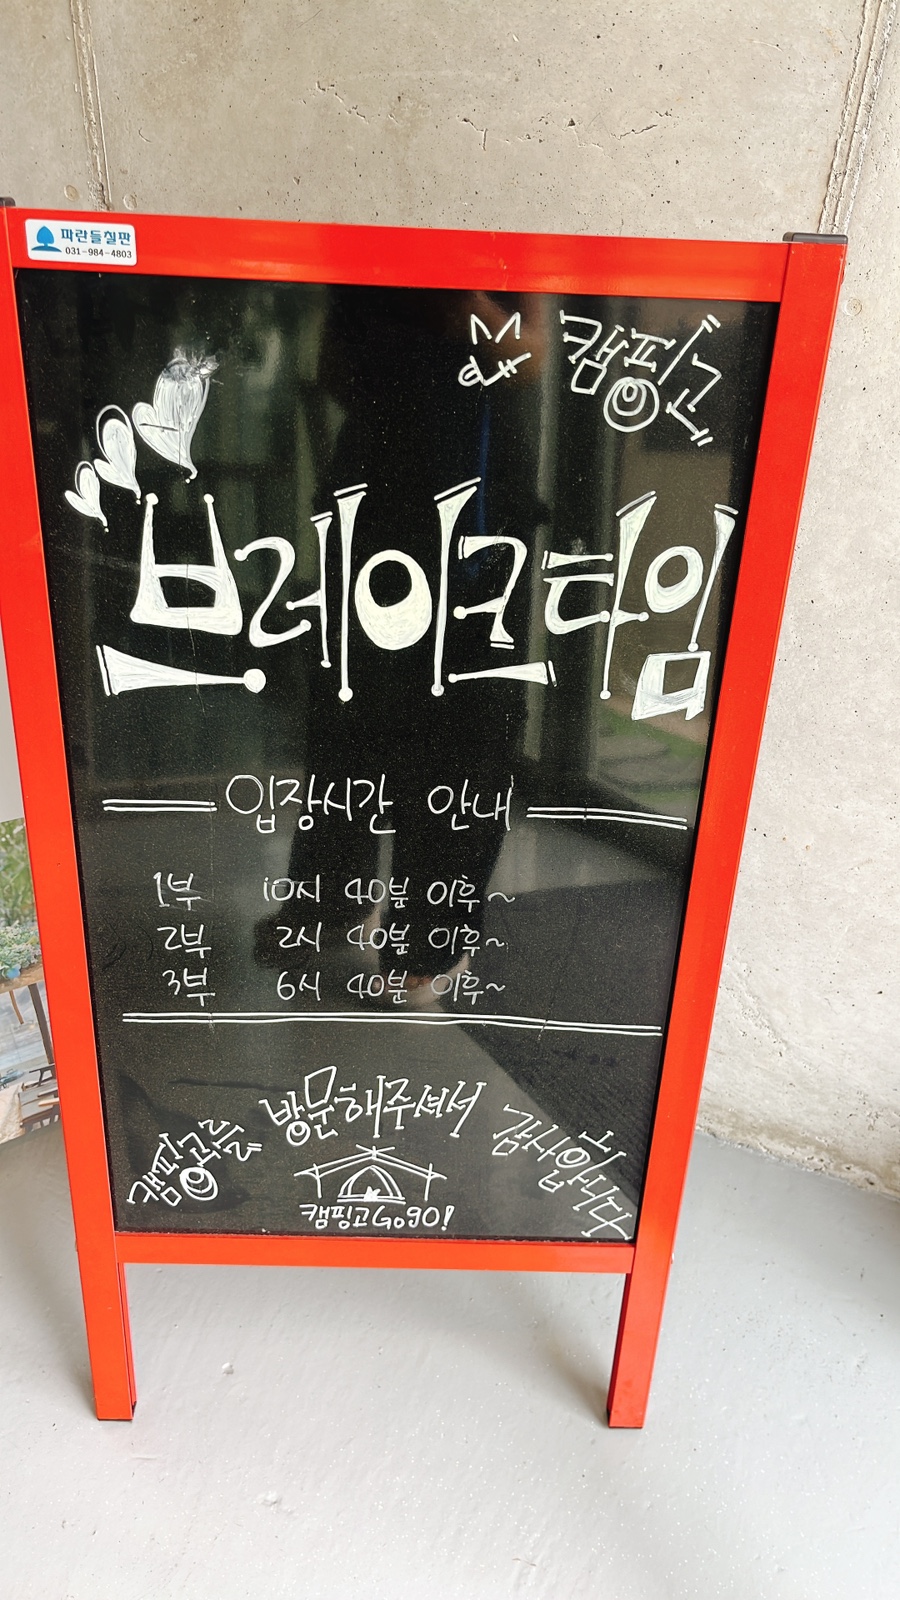 파란들칠판
031-984-4803
캠핑고
브레이크타임
입장시간 안내
1부 10시 40분 이후~
2부 2시 40분 이후~
3부 6시 40분 이후~
캠핑고를 방문해주셔서 감사합니다
캠핑고 Go go!